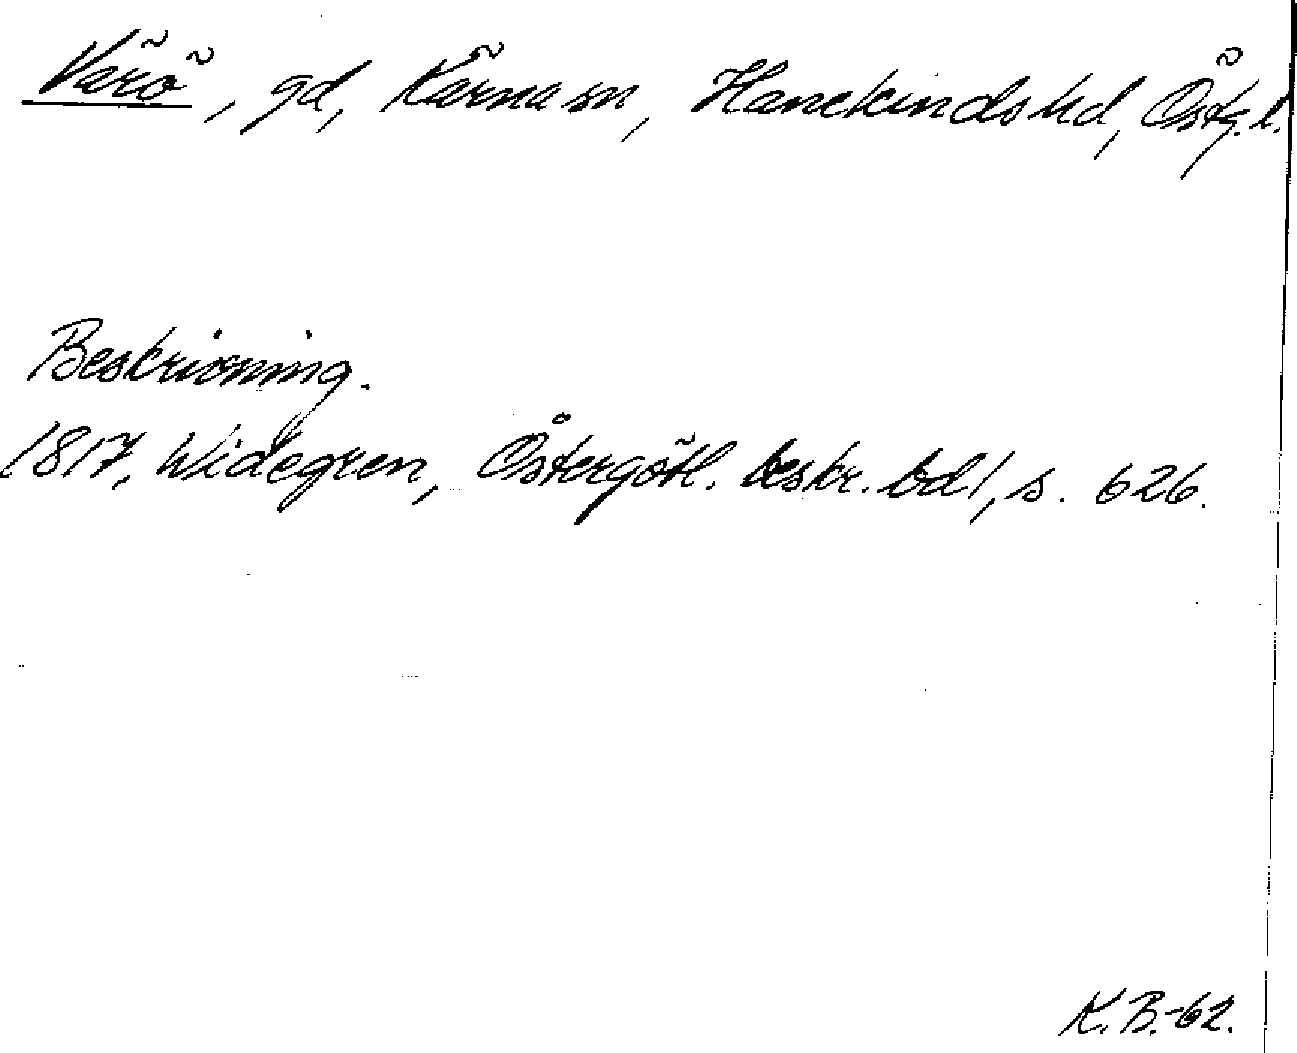 Värö, gd, Kärna sn, Hanekinds hd, Östg. l.
Beskrivning.
1817, Widegren, Östergötl. beskr. bd 1, s. 626.
K. B.-62.